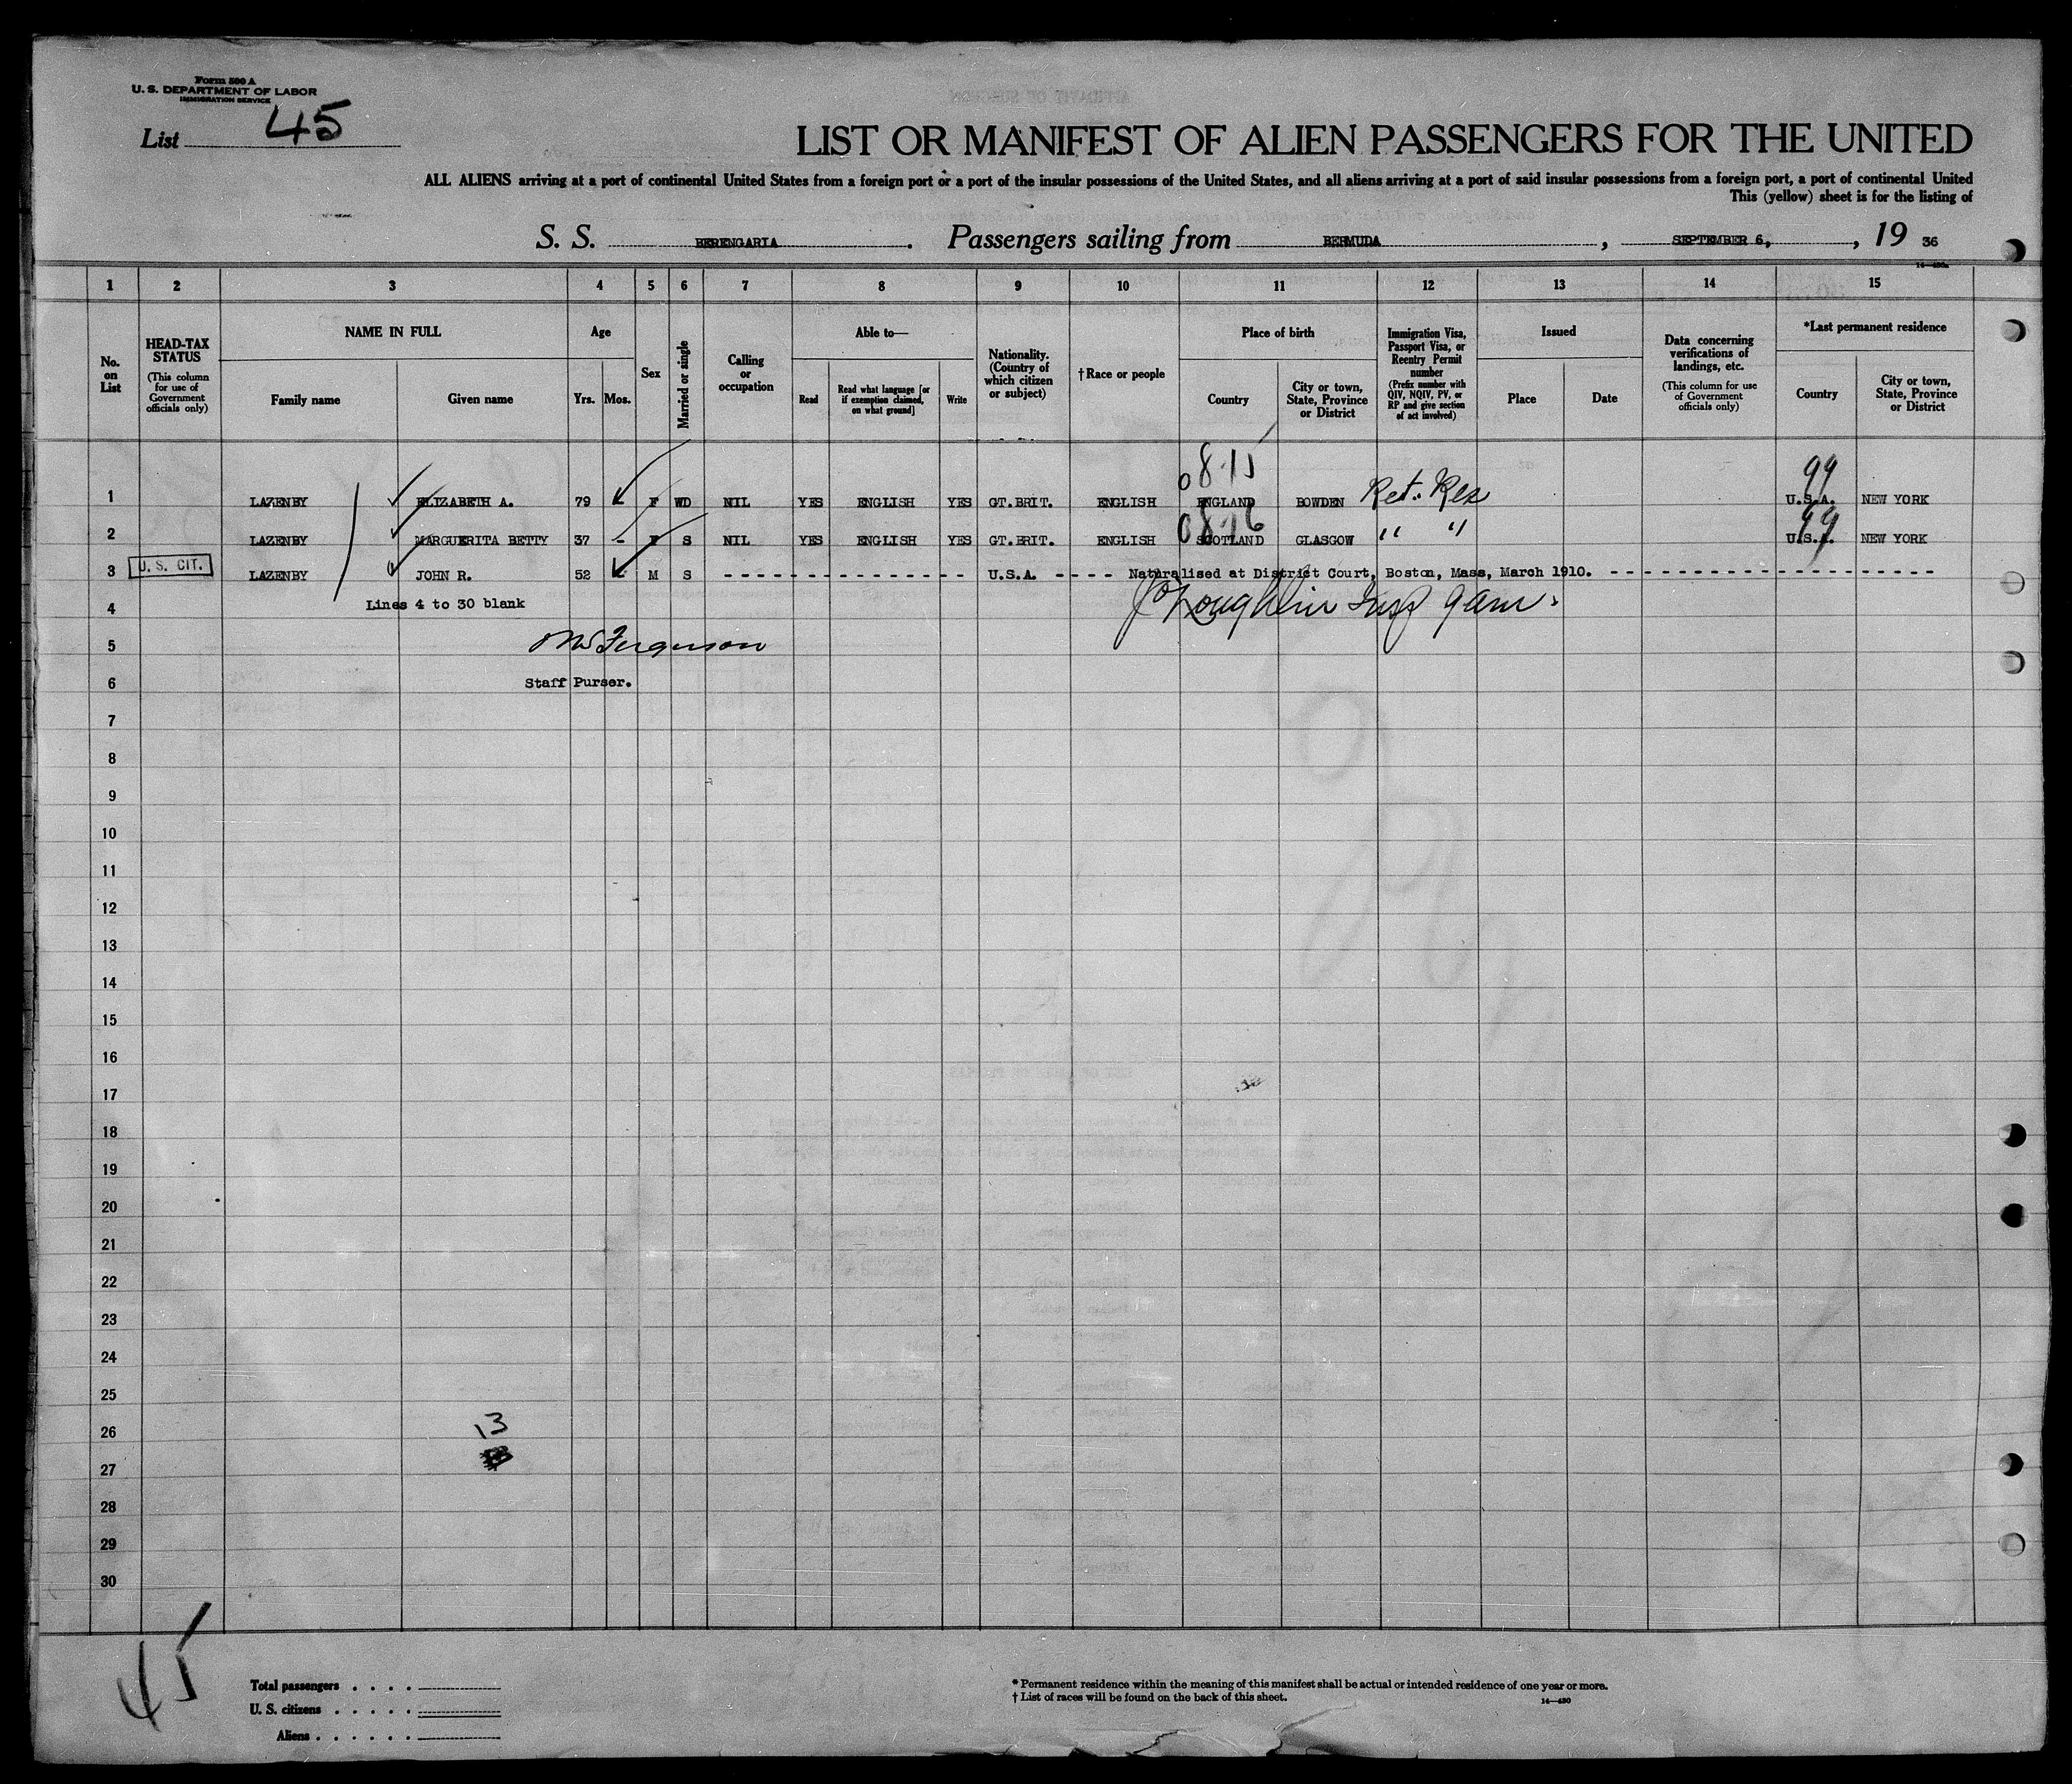 Form 500 A
U. S. DEPARTMENT OF LABOR
IMMIGRATION SERVICE
List 45
LIST OR MANIFEST OF ALIEN PASSENGERS FOR THE UNITED
ALL ALIENS arriving at a port of continental United States from a foreign port or a port of the insular possessions of the United States, and all aliens arriving at a port of said insular possessions from a foreign port, a port of continental United
This (yellow) sheet is for the listing of
S. S. BERENGARIA . Passengers sailing from BERMUDA , SEPTEMBER 6, , 19 36
1 2 3 4 5 6 7 8 9 10 11 12 13 14 15
No. on List
HEAD-TAX STATUS (This column for use of Government officials only)
NAME IN FULL
Family name Given name
Age
Yrs. Mos.
Sex
Married or single
Calling or occupation
Able to—
Read
Read what language [or if exemption claimed, on what ground]
Write
Nationality. (Country of which citizen or subject)
†Race or people
Place of birth
Country
City or town, State, Province or District
Immigration Visa, Passport Visa, or Reentry Permit number (Prefix number with QIV, NQIV, PV, or RP and give section of act involved)
Issued
Place Date
Data concerning verifications of landings, etc. (This column for use of Government officials only)
*Last permanent residence
Country
City or town, State, Province or District
08-15 99
1 LAZENBY ELIZABETH A. 79 F WD NIL YES ENGLISH YES GT.BRIT. ENGLISH ENGLAND BOWDEN Ret. Res U.S.A. NEW YORK
2 LAZENBY MARGUERITA BETTY 37 - F S NIL YES ENGLISH YES GT.BRIT. ENGLISH SCOTLAND GLASGOW " " U.S.A. NEW YORK
3 U. S. CIT. LAZENBY JOHN R. 52 M S - - - - U.S.A. - - - - Naturalised at District Court, Boston, Mass, March 1910. - - - -
4 Lines 4 to 30 blank
5 Ferguson
6 Staff Purser.
7
8
9
10
11
12
13
14
15
16
17
18
19
20
21
22
23
24
25
26 13
27
28
29
30
45
Total passengers . . . .
U. S. citizens . . . . .
Aliens . . . . . .
* Permanent residence within the meaning of this manifest shall be actual or intended residence of one year or more.
† List of races will be found on the back of this sheet.
14—480